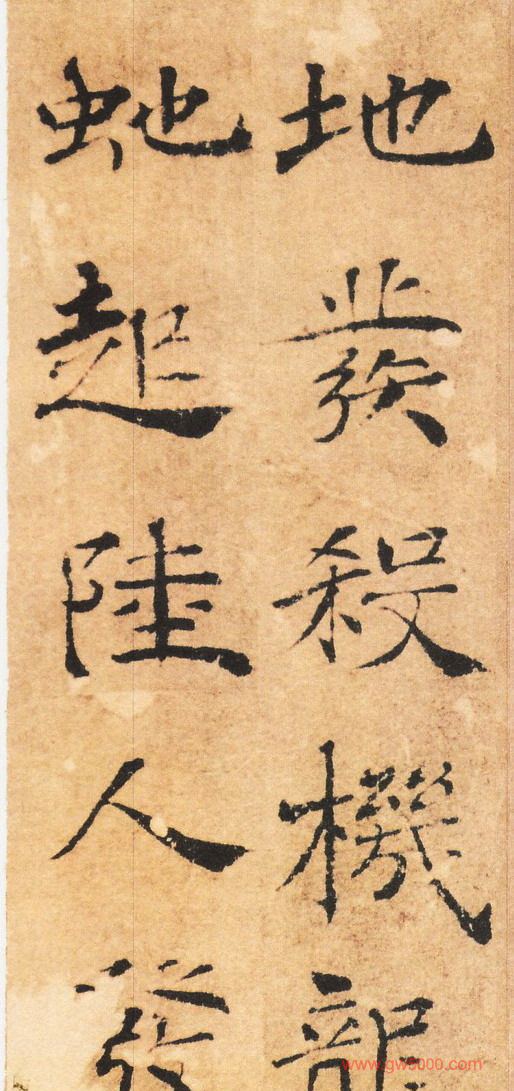 地發殺機龍
虵起陸人發
www.gw5000.com